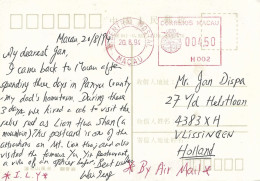 Macau, 20/8/94
My dearest Jan,
I came back to Macau after
spending three days in Panyu County
my dad's hometown. During these
3 days we hired a cab to visit the
relics such as Lion Hua Shan (a
mountain). This postcard is one of the
attractions on Mt. Lian Hua, and also
visited the famous Yu Yin
of an officer. Best wishes
* S. L. Y *
CORREIOS MACAU
20.8.94
MACAU
0450
H 002
Mr. Jan Dispa
27 Yd Hulstlaan
4383 X H
VLISSINGEN
Holland
* By Air Mail *